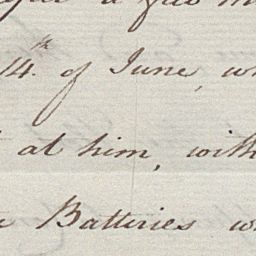 14th of June, w
at him, with
Batteries w